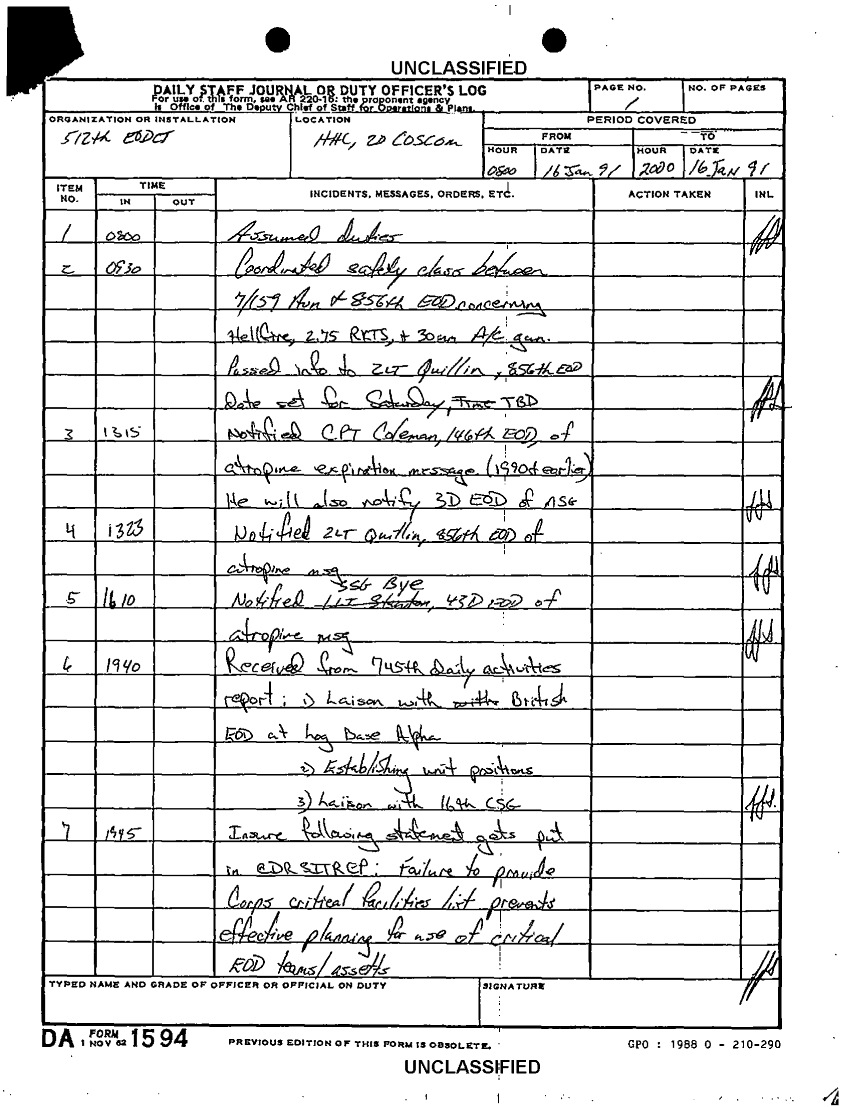 UNCLASSIFIED
DAILY STAFF JOURNAL OR DUTY OFFICER'S LOG
For use of this form, see AR 220-15; the proponent agency
is Office of The Deputy Chief of Staff for Operations & Plans.
PAGE NO.
1
NO. OF PAGES
ORGANIZATION OR INSTALLATION
512th EODCT
LOCATION
HHC, 2D COSCOM
PERIOD COVERED
FROM
TO
HOUR
DATE
HOUR
DATE
0800
16 Jan 91
2000
16 JAN 91
ITEM NO.
TIME
IN
OUT
INCIDENTS, MESSAGES, ORDERS, ETC.
ACTION TAKEN
INL
1 0800 Assumed duties
2 0930 Coordinated safety class between
7/159 Avn & 856th EOD concerning
Hellfire, 2.75 RKTS, & 30mm A/C gun.
Passed info to 2LT Quillin, 856th EOD
Date set for Saturday, Time TBD
3 1315 Notified CPT Coleman, 146th EOD, of
atropine expiration message (1990 & earlier)
He will also notify 3D EOD of ASG
4 1323 Notified 2LT Quillin, 856th EOD of
atropine msg
SSG Bye
5 1610 Notified 43D EOD of
atropine msg
6 1940 Received from 745th daily activities
report: 1) Laison with British
EOD at Log Base Alpha
2) Establishing unit positions
3) Laison with 16th CSG
7 1945 Insure following statement gets put
in CDR SITREP: Failure to provide
Corps critical facilities list prevents
effective planning for use of critical
EOD teams/assetts
TYPED NAME AND GRADE OF OFFICER OR OFFICIAL ON DUTY
SIGNATURE
DA FORM 1 NOV 62 1594
PREVIOUS EDITION OF THIS FORM IS OBSOLETE.
GPO : 1988 O - 210-290
UNCLASSIFIED